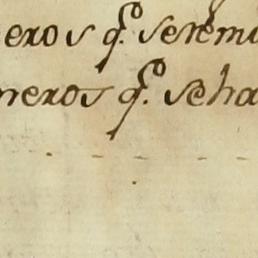 eros q.̃ se rem
neros q.̃ seha